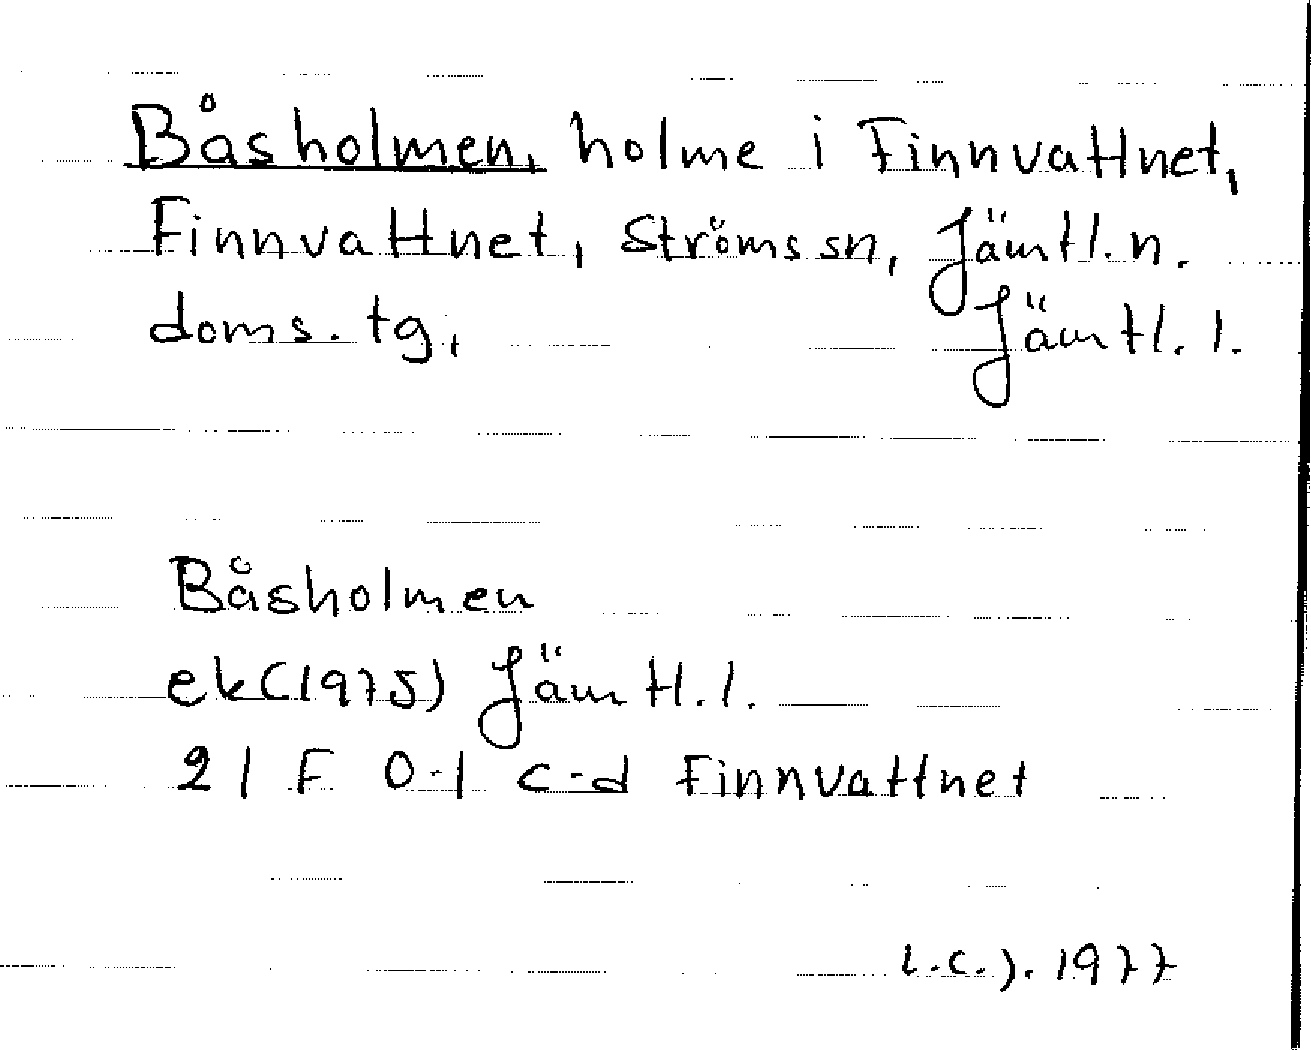 Båsholmen, holme i Finnvattnet,
Finnvattnet, Ströms sn, Jämtl. n.
doms. tg, Jämtl. l.
Båsholmen
ek (1975) Jämtl. l.
21 F 0-1 c-d Finnvattnet
L.C.J. 1977